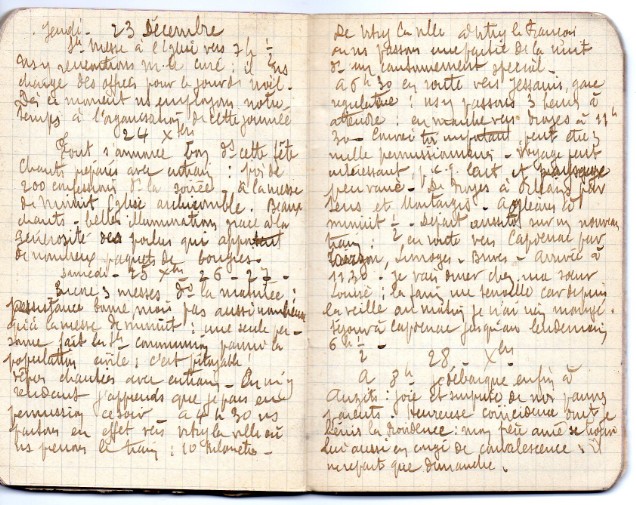 Jeudi - 23 Décembre
Ste messe à l'Eglise vers 7h ½
ns y rencontrons m. le curé : il ns
charge des offices pour le jour de Noël.
Dès ce moment ns employons notre
temps à l'organisation de cette journée
24 Xbre
Tout s'annonce bon ds cette fête
chants préparés avec entrain : près de
200 confessions ds la soirée - à la messe
de minuit, Eglise archicomble. Beaux
chants - belle illumination grâce à la
générosité des poilus qui apportent
de nombreux paquets de bougies.
Samedi - 25 Xbre - 26 - 27 -
Encore 3 messes ds la matinée :
assistance bonne mais pas aussi nombreuse
qu'à la messe de minuit : une seule per-
sonne fait la Ste communion parmi la
population civile ; c'est pitoyable !
Vêpres chantées avec entrain - En m'y
rendant j'apprends que je pars en
permission ce soir à 4h 30 ns
partons en effet vers Vitry la ville où
ns prenons le train : 10 kilomètres -
De Vitry la ville à Vitry le François
où ns passons une partie de la nuit
ds un cantonnement spécial -
A 6h 30 en route vers Jessains, gare
régulatrice : ns y passons 3 heures à
attendre : en marche vers Troyes à 11h
30 - Convoi très important, peut être
mille permissionnaires - Voyage peu
intéressant, il est lent et paysage
peu varié - De Troyes à Orléans par
Sens et Montargis - A Orléans à
minuit ½ - Départ aussitôt sur un nouveau
train : en route vers Capdenac par
Vierzon, Limoges - Brives - Arrivée à
17.30 - Je vais dîner chez ma soeur
Louise ; la faim me tenaille car depuis
la veille au matin je n'ai rien mangé.
Séjour à Capdenac jusqu'au lendemain
6h ½ -
28 - Xbre
A 8h je débarque enfin à
Auzits : joie et surprise de mes parents
Heureuse coïncidence dont je
bénis la Providence : mon frère aîné se trouve
lui aussi en congé de convalescence. Il
ne repart que dimanche.